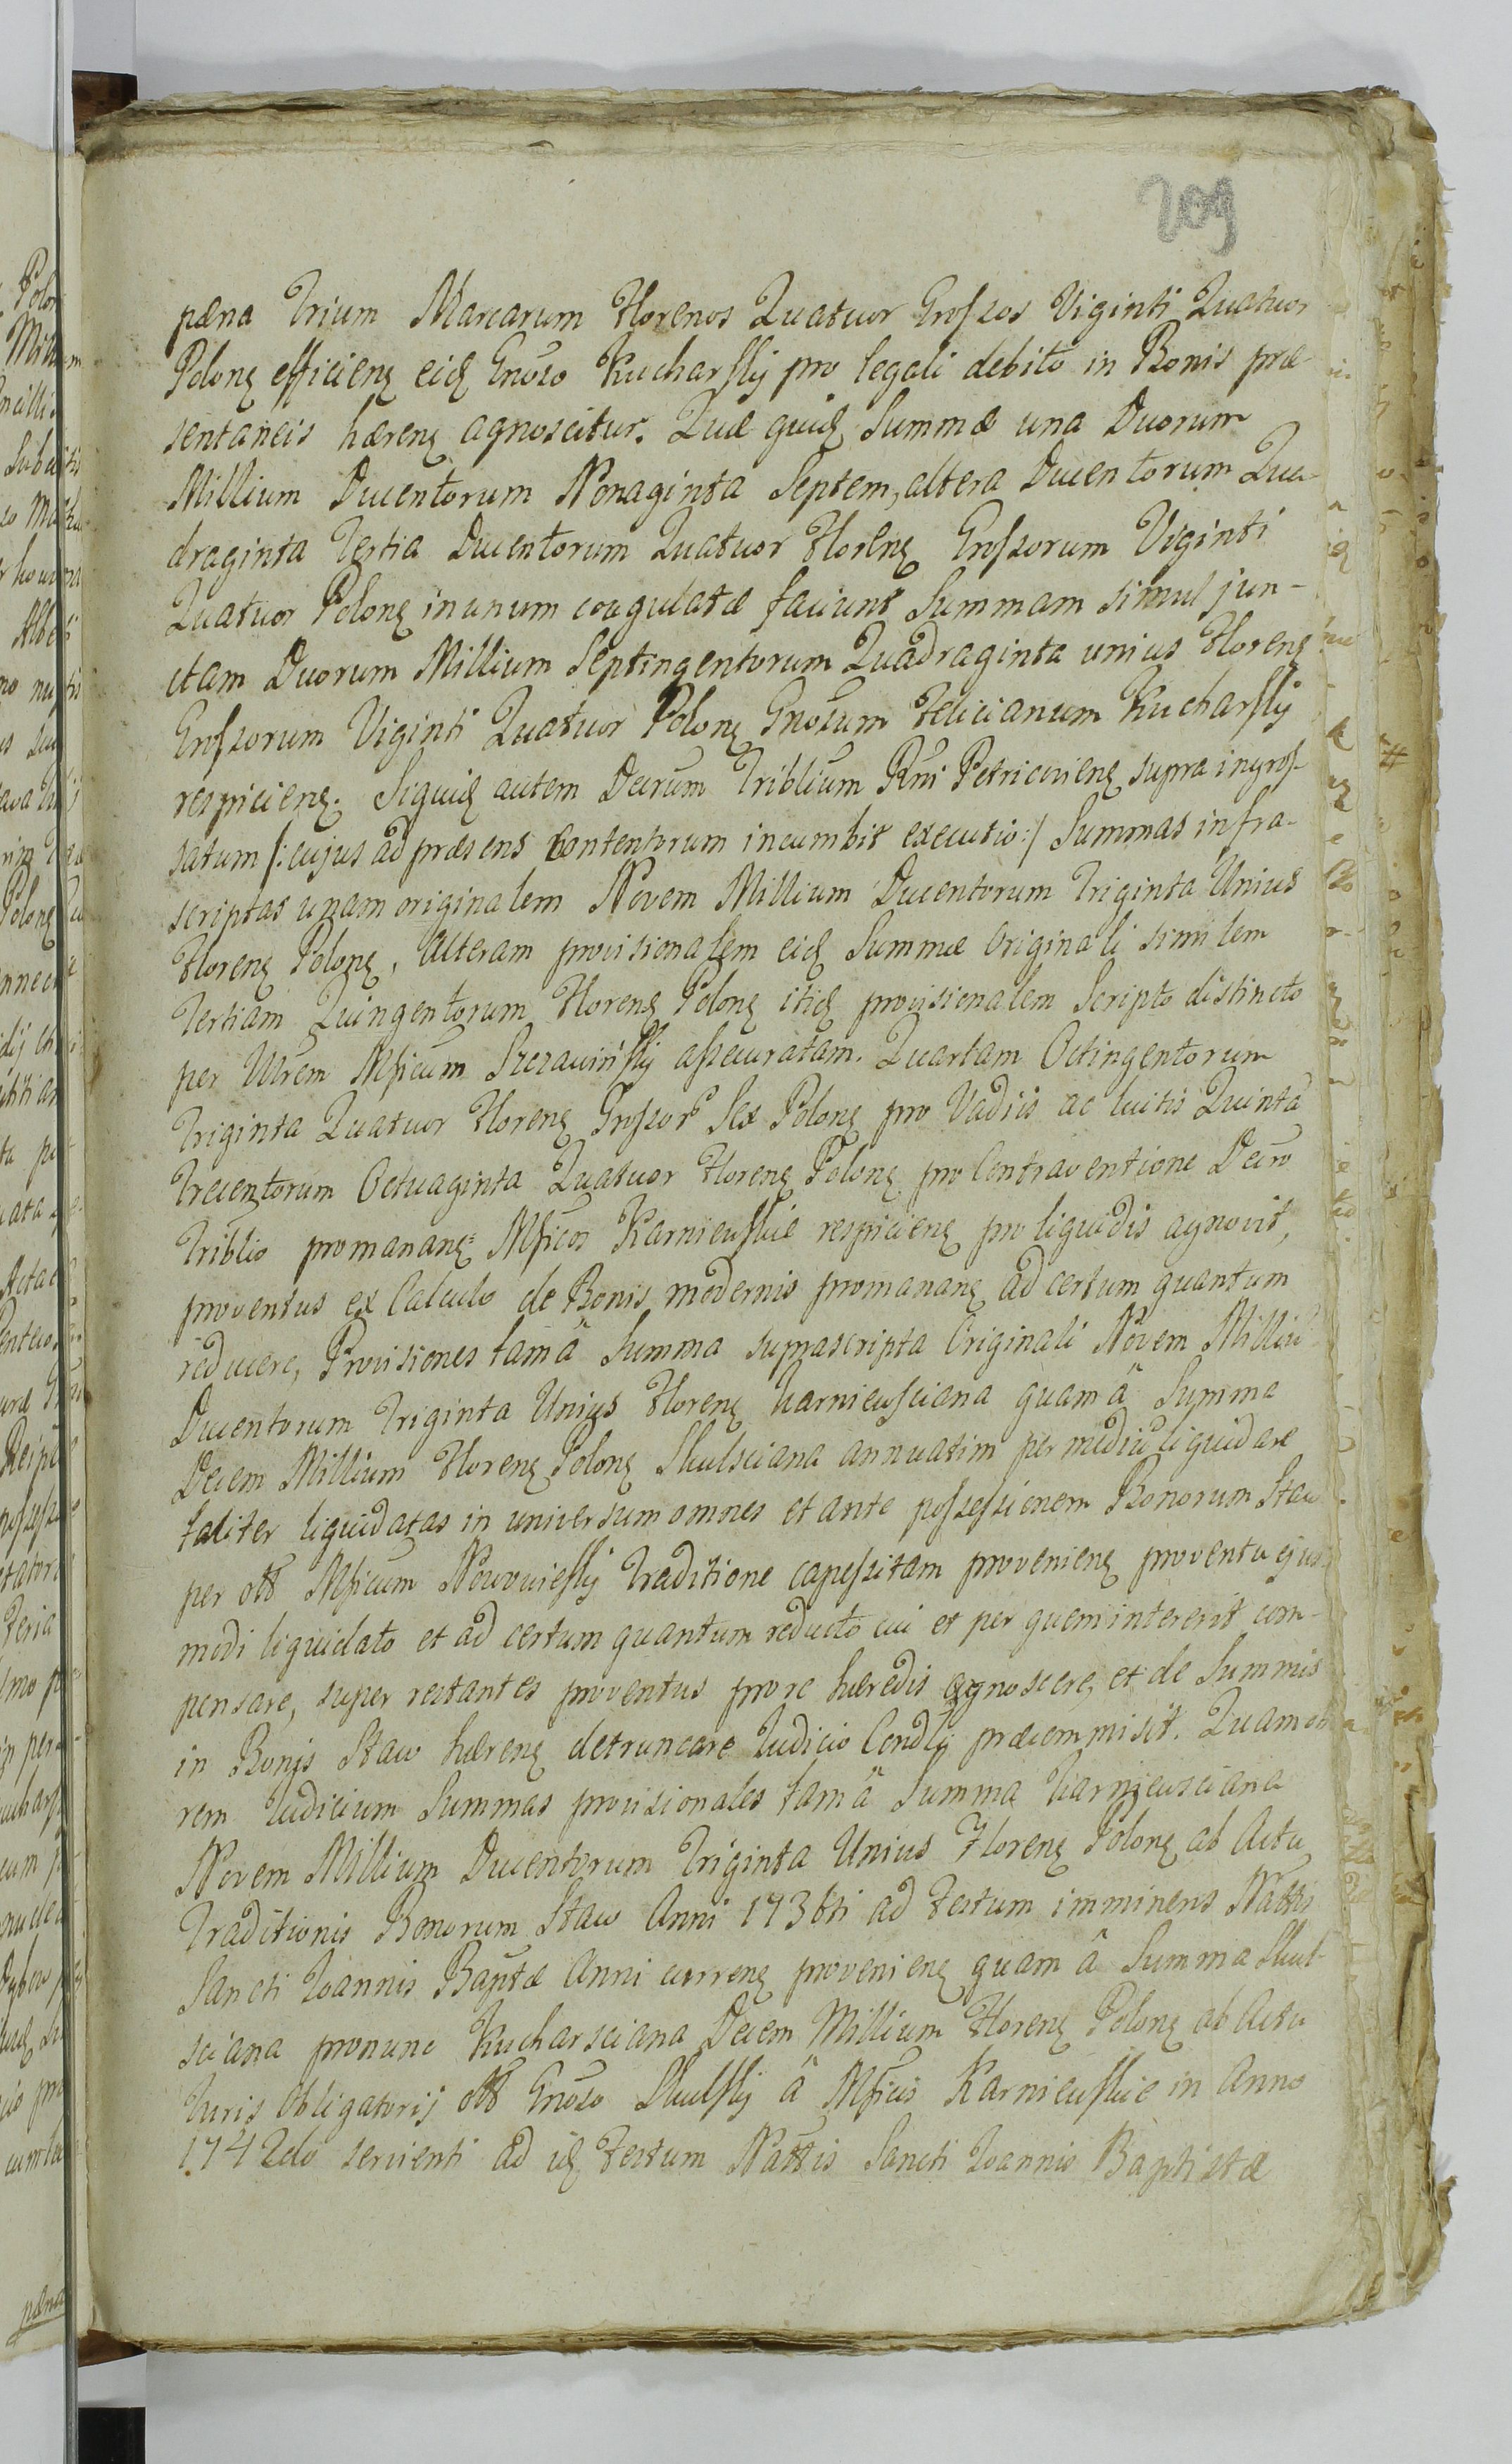 209
pæna Trium Marcarum Florenos Quatuor Grossos Viginti Quatuor
Polonę efficienę eidę Gnõso Kucharsky pro legali debito in Bonis præ-
sentaneis hærenę agnoscitur. Quæ quidę Summæ una Duorum
Millium Ducentorum Nonaginta Septem, altera Ducentorum Qua-
draginta Tertia Ducentorum Quatuor Florenę Grossorum Viginti
Quatuor Polonę in unum coagulatæ faciunt Summam simul jun-
ctam Duorum Millium Septingentorum Quadraginta unius Florenę
Grossorum Viginti Quatuor Polonę Gnõsum Felicianum Kucharsky
respicienę. Siquidę autem Decrum Triblium Rñi Petricovienę supra ingros-
satum /: cujus ad præsens contentorum incumbit executio :/ Summas infra-
scriptas unam originalem Novem Millium Ducentorum Triginta Unius
Florenę Polonę, alteram provisionalem eidę Summæ Originali similem
Tertiam Quingentorum Florenę Polonę itidę provisionalem Scripto distincto
per Ulrem Mficum Szczawinsky assecuratam. Quartam Octingentorum
Triginta Quatuor Florenę Grossorę Sex Polonę pro Vadiis ac luitis Quintã
Trecentorum Octuaginta Quatuor Florenę Polonę pro Contraventione Decro
Triblio promananę Mficos Karniewskie respicienę pro liquidis agnovit,
proventus ex Calculo de Bonis modernis promananę ad certum quantum
reducere, Provisiones tam â Summa suprascripta Originali Novem Milliũ
Ducentorum Triginta Unius Florenę Karniewsciana quam â Summa
Decem Millium Florenę Polonę Skulsciana annuatim per mediũ liquidare
taliter liquidatas in universum omnes et ante possessionem Bonorum Staw
per olt Mficum Nowowiesky Traditione capessitam provenienę proventu ejus
modi liquidato et ad certum quantum reducto cui et per quem intererit com-
pensare, super restantes proventus pro re hæredis agnoscere, et de Summis
in Bonis Staw hærenę detruncare Judicio Condlї præcommisit. Quam ob
rem Judicium Summas provisionales tam â Summa Karniewsciana
Novem Millium Ducentorum Triginta Unius Florenę Polonę ab Actu
Traditionis Bonorum Staw Anni 1736ti ad Festum imminens Nattis
Sancti Joannis Baptæ Anni currenę provenienę quam â Summa Skul-
sciana pronunc Kucharsciana Decem Millium Florenę Polonę ab Actu
Juris Obligatorij olt Gnõso Skulsky â Mficis Karniewskie in Anno
1742do servienti ad idę Festum Nattis Sancti Joannis Baptistæ